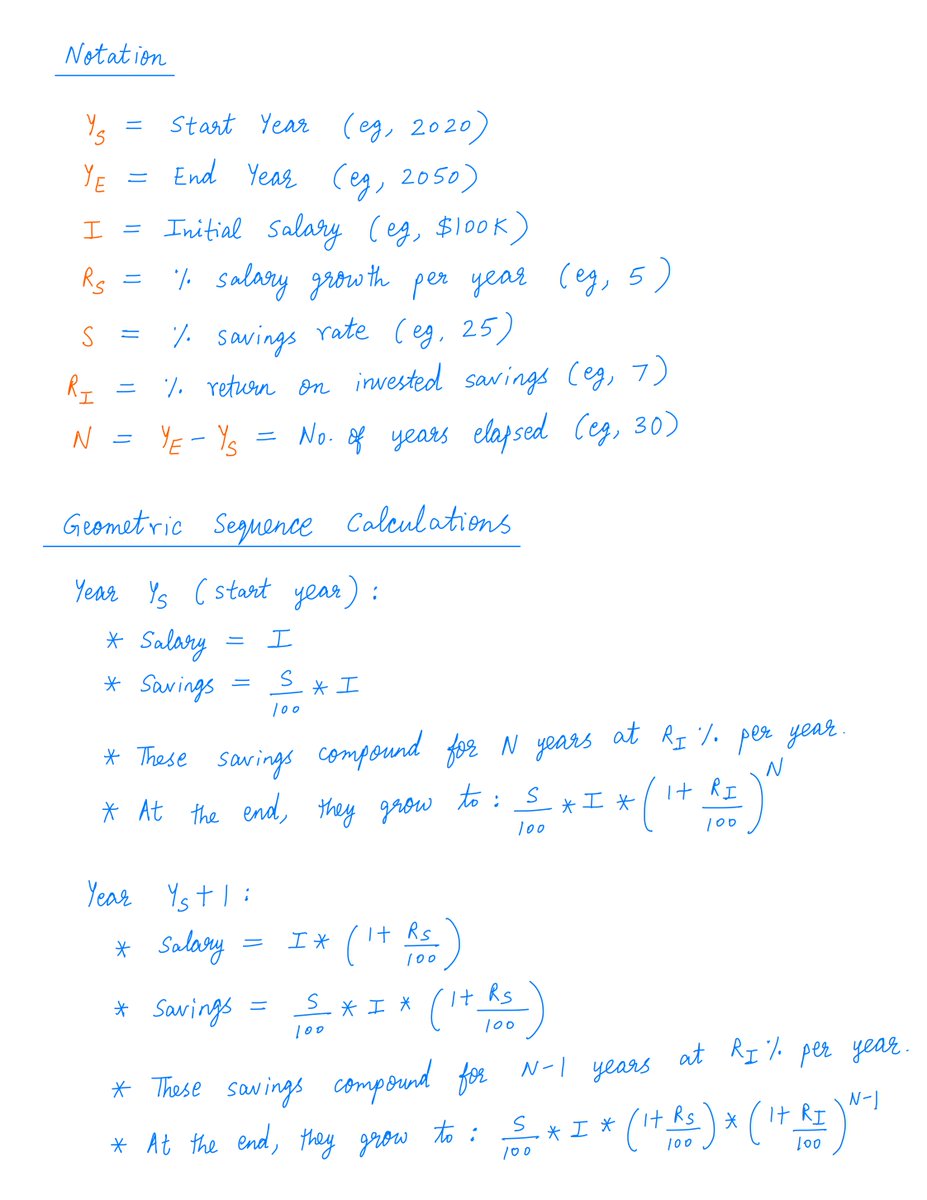 Notation
Y_S = Start Year (eg, 2020)
Y_E = End Year (eg, 2050)
I = Initial Salary (eg, $100K)
R_S = % salary growth per year (eg, 5)
S = % savings rate (eg, 25)
R_I = % return on invested savings (eg, 7)
N = Y_E - Y_S = No. of years elapsed (eg, 30)
Geometric Sequence Calculations
Year Y_S (start year):
* Salary = I
* Savings = S/100 * I
* These savings compound for N years at R_I % per year.
* At the end, they grow to: S/100 * I * (1 + R_I/100)^N
Year Y_S + 1:
* Salary = I * (1 + R_S/100)
* Savings = S/100 * I * (1 + R_S/100)
* These savings compound for N-1 years at R_I % per year.
* At the end, they grow to: S/100 * I * (1 + R_S/100) * (1 + R_I/100)^N-1